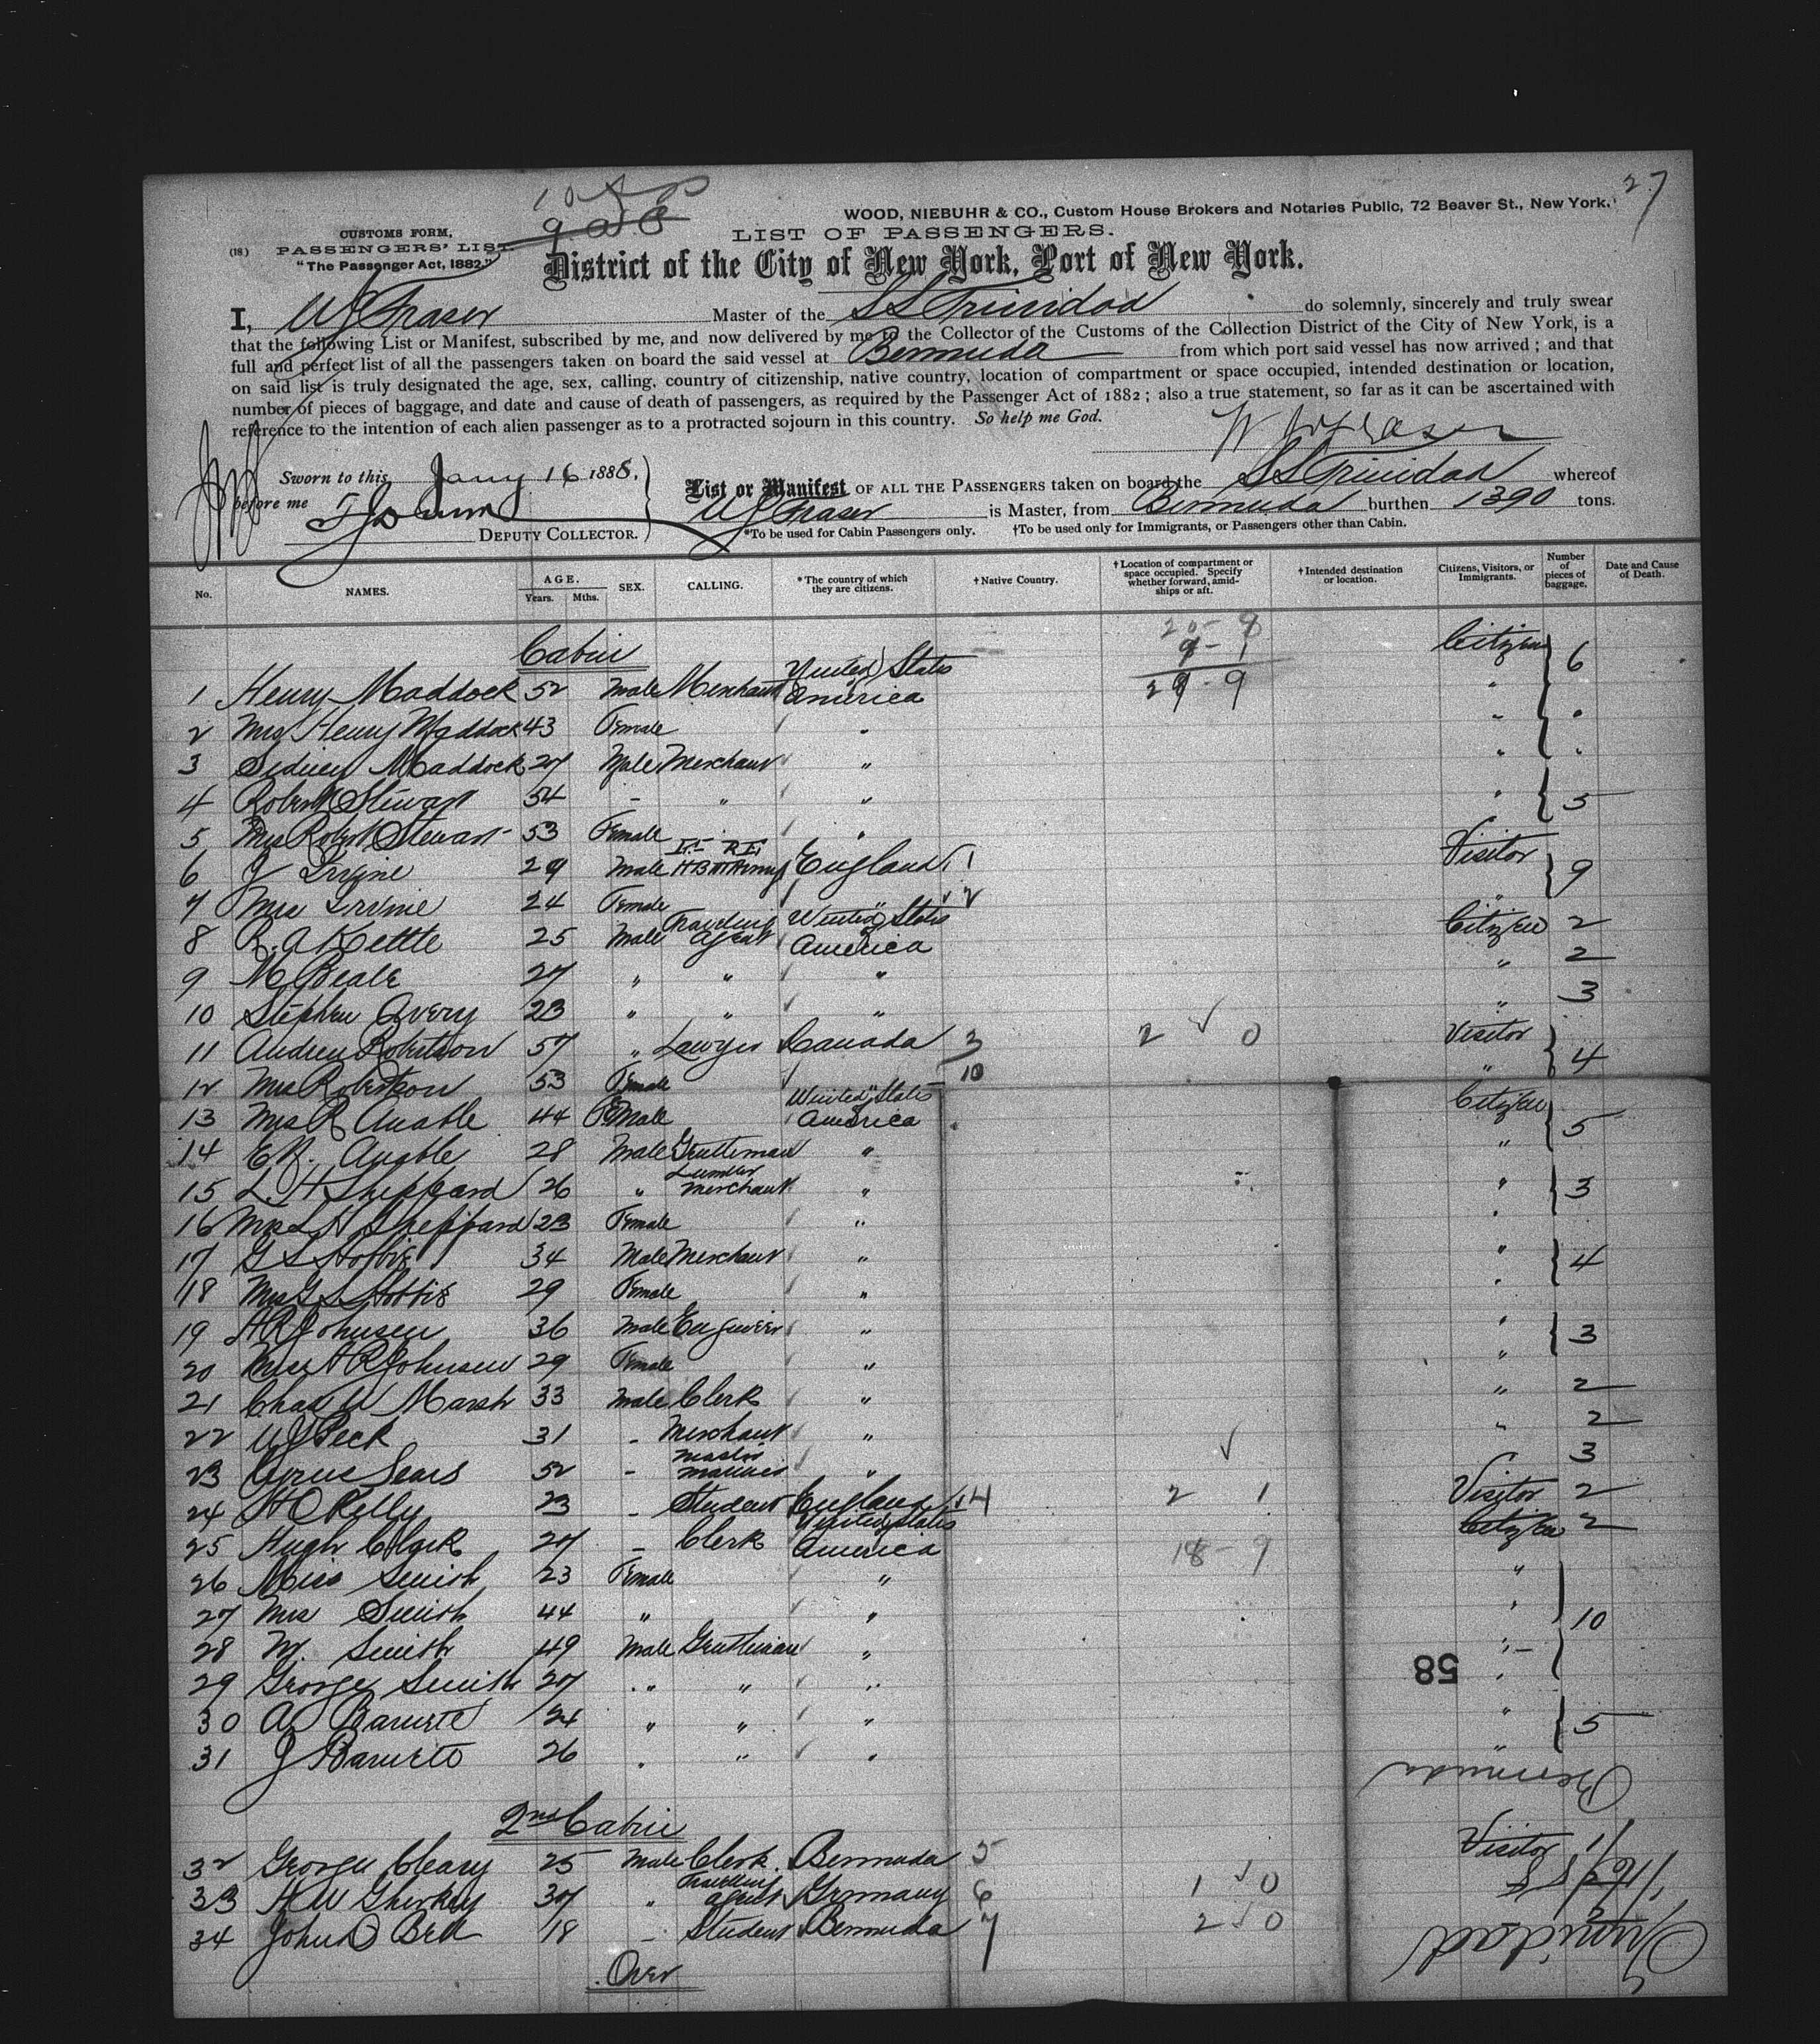 27
WOOD, NIEBUHR & CO., Custom House Brokers and Notaries Public, 72 Beaver St., New York.
(18)
CUSTOMS FORM,
PASSENGERS' LIST.
"The Passenger Act, 1882."
LIST OF PASSENGERS.
District of the City of New York, Port of New York.
I, W J Fraser Master of the SS Trinidad do solemnly, sincerely and truly swear
that the following List or Manifest, subscribed by me, and now delivered by me to the Collector of the Customs of the Collection District of the City of New York, is a
full and perfect list of all the passengers taken on board the said vessel at Bermuda from which port said vessel has now arrived; and that
on said list is truly designated the age, sex, calling, country of citizenship, native country, location of compartment or space occupied, intended destination or location,
number of pieces of baggage, and date and cause of death of passengers, as required by the Passenger Act of 1882; also a true statement, so far as it can be ascertained with
reference to the intention of each alien passenger as to a protracted sojourn in this country. So help me God.
W J Fraser
Sworn to this Jany 16 1888,
before me
DEPUTY COLLECTOR.
List or Manifest OF ALL THE PASSENGERS taken on board the SS Trinidad whereof
W J Fraser is Master, from Bermuda burthen 1390 tons.
*To be used for Cabin Passengers only. †To be used only for Immigrants, or Passengers other than Cabin.
No. NAMES. AGE. Years. Mths. SEX. CALLING. *The country of which they are citizens. †Native Country. †Location of compartment or space occupied. Specify whether forward, amidships or aft. †Intended destination or location. Citizens, Visitors, or Immigrants. Number of pieces of baggage. Date and Cause of Death.
Cabin
1 Henry Maddock 52 Male Merchant United States America Citizen 6
2 Mrs Henry Maddock 43 Female " "
3 Sidney Maddock 27 Male Merchant " "
4 Robert Stewart 54 - " " " 5
5 Mrs Robert Stewart 53 Female "
6 J Irvine 29 Male Lt RE HBM Army England 1 Visitor 9
7 Mrs Irvine 24 Female " 2 "
8 R. A Kettle 25 Male Travelling Agent United States America Citizen 2
9 M Beale 27 " " " " 2
10 Stephen Avery 23 " " " " 3
11 Andrew Robertson 57 " Lawyer Canada 3 2 0 Visitor 4
12 Mrs Robertson 53 Female " 10 "
13 Mrs R Anable 44 Female United States America Citizen 5
14 E N. Anable 28 Male Gentleman " "
15 L. H Sheppard 26 " Lumber Merchant " " 3
16 Mrs L H Sheppard 23 Female " "
17 G L Hobbis 34 Male Merchant " " 4
18 Mrs G L Hobbis 29 Female " "
19 H R Johnsen 36 Male Engineer " " 3
20 Mrs H R Johnsen 29 Female " "
21 Chas W Marsh 33 Male Clerk " " 2
22 W J Peck 31 - Merchant " " 2
23 Cyrus Sears 52 - Master Mariner " 3
24 H C Kelly 23 - Student England 4 2 1 Visitor 2
25 Hugh Clark 27 - Clerk United States America 18 - 9 Citizen 2
26 Miss Smith 23 Female " "
27 Mrs Smith 44 " " " 10
28 M. Smith 49 Male Gentleman " "
29 George Smith 27 " " " "
30 A Barnete 24 " " " " 5
31 J Barnete 26 " " " "
58
Bermuda
2nd Cabin
32 George Cleary 25 Male Clerk Bermuda 5 Visitor
33 H W 37 " Travelling Agent Germany 6 1 0
34 John D Bell 18 - Student Bermuda 7 2 0
Trinidad
Over